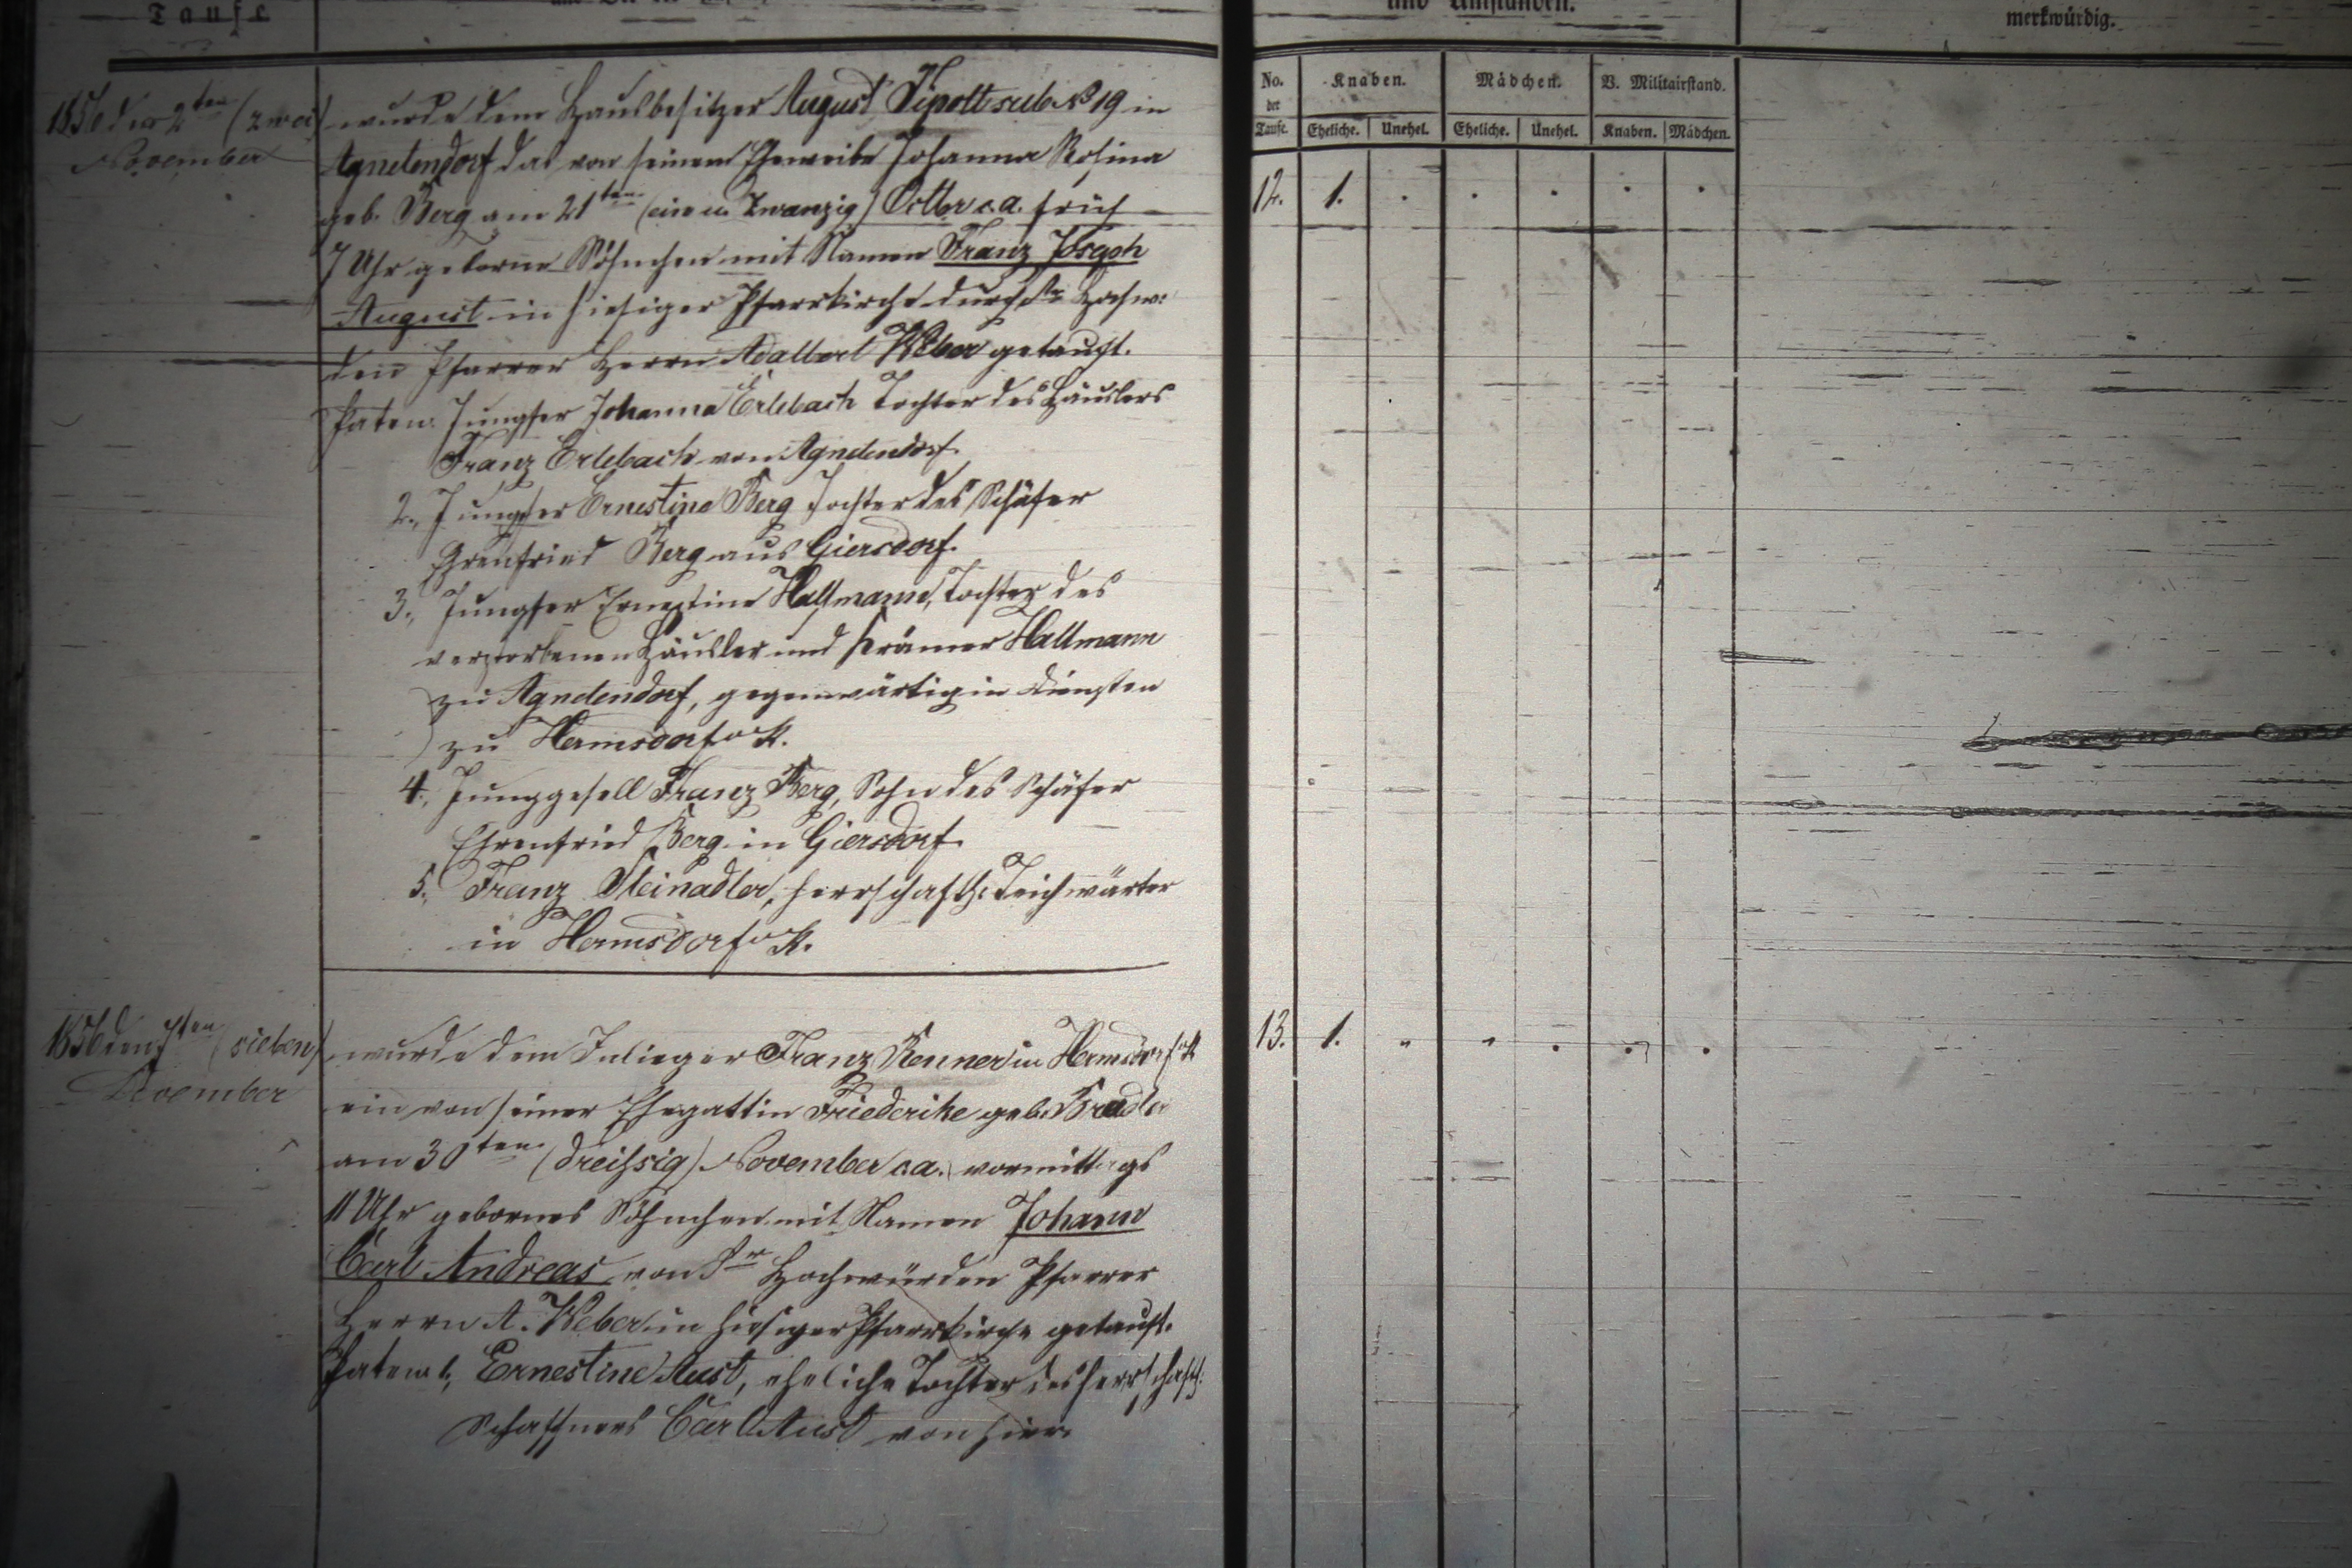 Taufe
und Umständen.
merkwürdig.
No. der Taufe.
Knaben.
Mädchen.
V. Militairstand.
Eheliche. Unehel. Eheliche. Unehel. Knaben. Mädchen.
1856 den 2ten (zwei)
November
wurde dem Hausbesitzer August sub No 19 in
Agnetendorf das von seinem Eheweibe Johanna Rosina
geb. Berg am 21ten (ein u. zwanzig) Octbr c.a. früh
7 Uhr geborne Söhnchen mit Namen Franz Joseph
August in hiesiger Pfarrkirche durch Sr Hochw:
den Pfarrer Herrn Adalbert Weber getauft.
Paten: Jungfer Johanna Erlebach Tochter des Häuslers
Franz Erlebach von Agnetendorf.
2., Jungfer Ernestine Berg Tochter des Schäfer
Ehrenfried Berg aus Giersdorf.
3., Jungfer Ernestine Hallmann, Tochter des
verstorbenen Häusler und Krämer Hallmann
zu Agnetendorf, gegenwärtig in Diensten
zu Hermsdorf u/K.
4., Junggesell Franz Berg, Sohn des Schäfer
Ehrenfried Berg in Giersdorf.
5., Franz Steinadler, herrschaftl: Teichwärter
in Hermsdorf u/K.
12. 1. . . . . .
1856 den 7ten (sieben)
November
wurde dem Inlieger Franz Renner in Hermsdorf u/K
ein von seiner Ehegattin Friederike geb. Bradler
am 30ten (dreißig) November c.a. vormittags
11 Uhr gebornes Söhnchen mit Namen Johann
Carl Andreas von Sr Hochwürden Pfarrer
Herrn A. Weber in hiesiger Pfarrkirche getauft.
Paten 1., Ernestine Aust, eheliche Tochter des herrschaftl:
Schaffners Carl Aust von hier.
13. 1. " " . . .